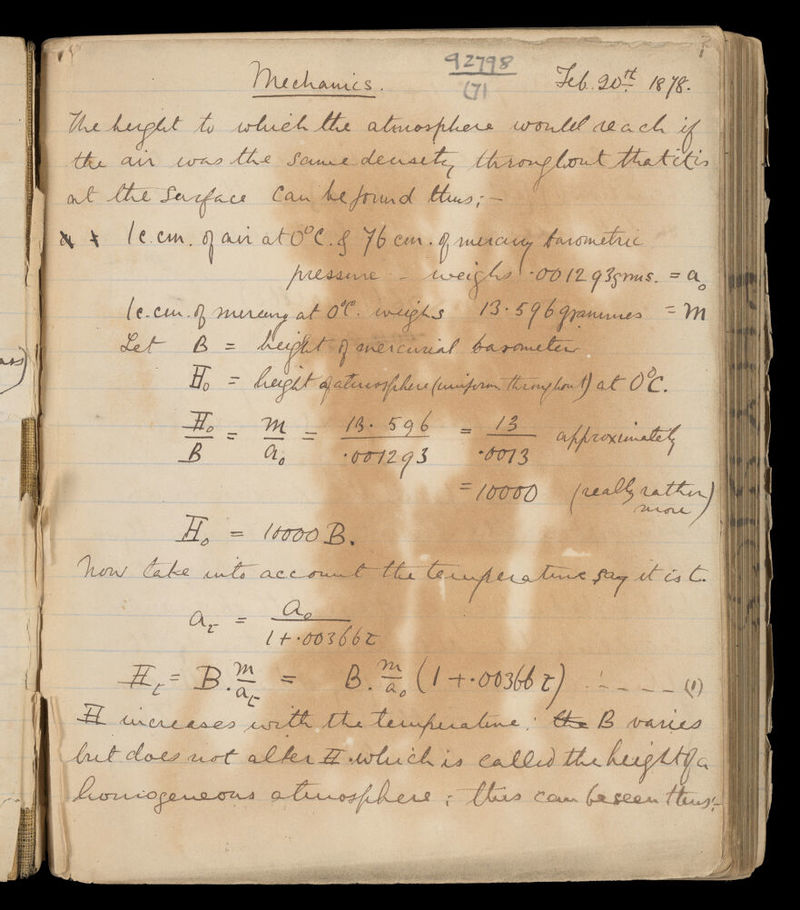 92798
(71
Mechanics. Feb. 20th 1878.
The height to which the atmosphere would reach if
the air was the same density throughout that it is
at the surface can be found thus;-
1c.cm. of air at 0°C. & 76 cm. of mercury barometric
pressure - weighs .001293grms. = a₀
1c.cm. of mercury at 0°C. weighs 13.596grammes = m
Let B = height of mercurial barometer
H₀ = height of atmosphere (uniform throughout) at 0°C.
H₀/B = m/a₀ = 13.596/.001293 = 13/.0013 approximately
= 10000 (really rather
more)
H₀ = 10000 B.
Now take into account the temperature, say it is t.
aₜ = a₀/1+.00366t
Hₜ = B.m/aₜ = B.m/a₀ (1+.00366t) ------(1)
H increases with the temperature: the B varies
but does not alter H. which is called the height of a
homogeneous atmosphere; this can be seen thus:-